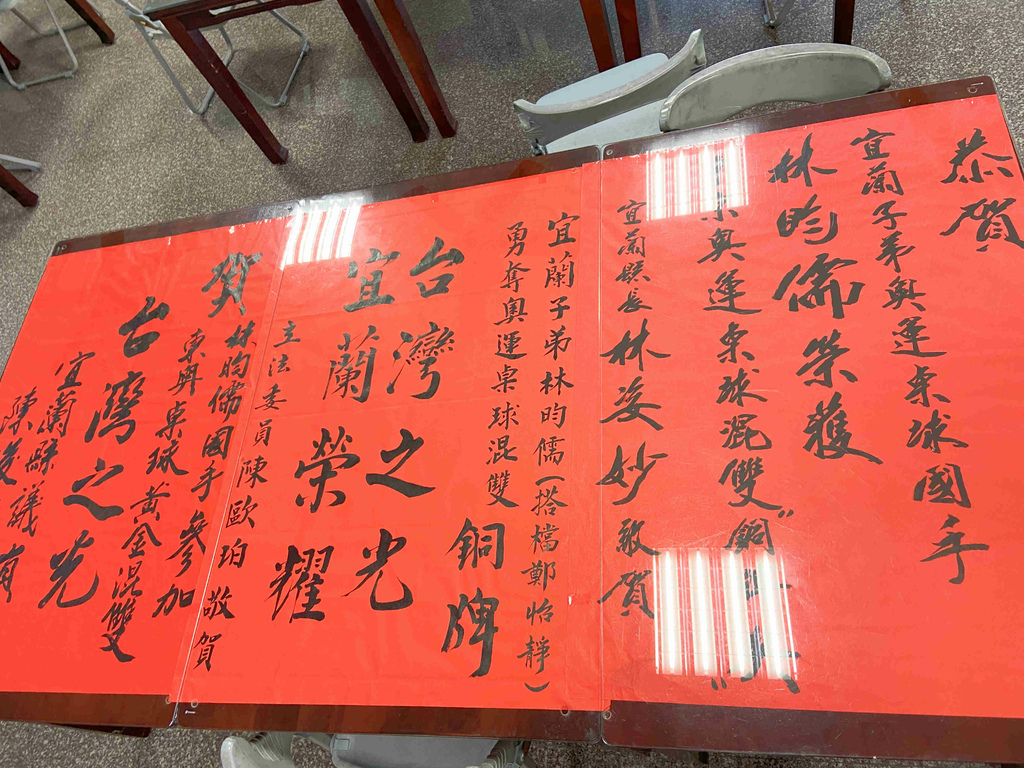 恭賀
宜蘭子弟奧運桌球國手
林昀儒榮獲
東奧運桌球混雙"銅
宜蘭縣長林姿妙敬賀
宜蘭子弟林昀儒(搭檔鄭怡靜)
勇奪奧運桌球混雙
銅牌
台灣之光
宜蘭榮耀
立法委員陳歐珀敬賀
賀林昀儒國手參加
東奧桌球黃金混雙
台灣之光
宜蘭縣議
陳俊